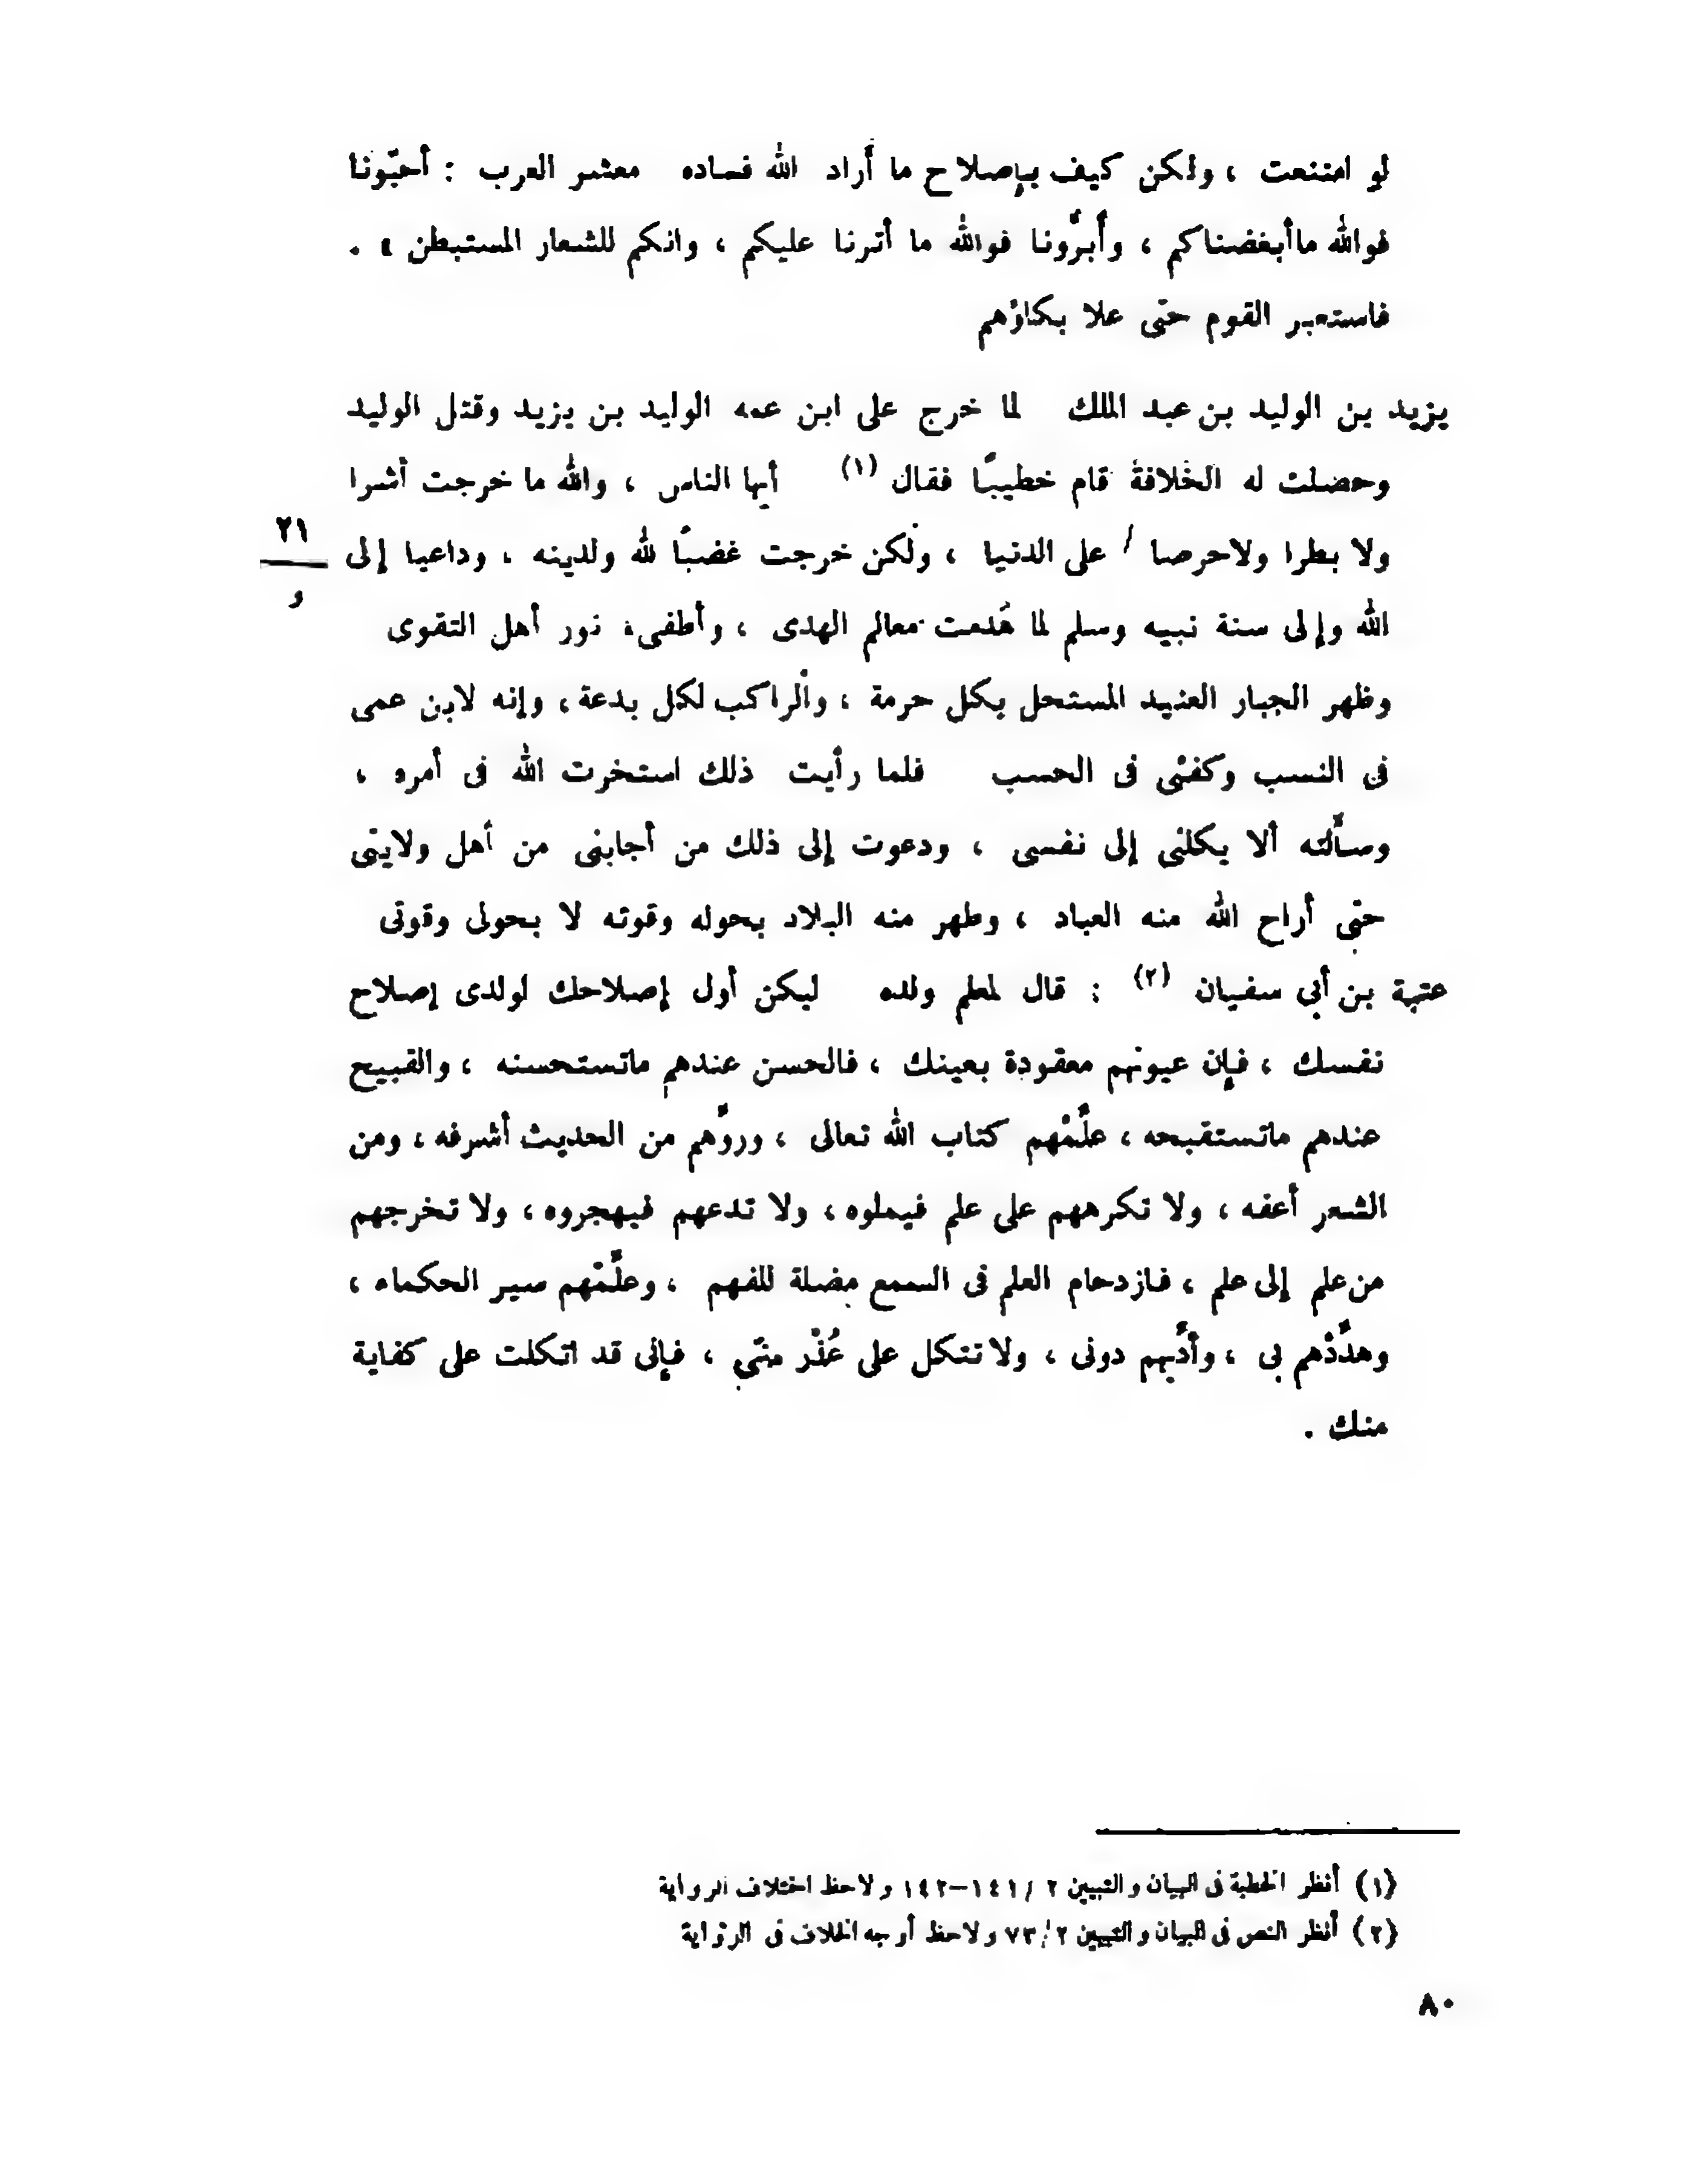 لو امتنعت ، ولكن كيف بإصلاح ما أراد الله فساده معشر العرب : أحبّونا
فوالله ماأبغضناكم ، وأبرّونا فوالله ما أثرنا عليكم ، وانكم للشعار المستبطن » .
فاستعبر القوم حتى علا بكاؤهم
يزيد بن الوليد بن عبد الملك لما خرج على ابن عمه الوليد بن يزيد وقتل الوليد
وحصلت له الخلافة قام خطيبًا فقال (١) أيها الناس ، والله ما خرجت أشرا
ولا بطرا ولاحرصا / على الدنيا ، ولكن خرجت غضبًا لله ولدينه ، وداعيا إلى
٢١
و
الله وإلى سنة نبيه وسلم لما هُدمت معالم الهدى ، وأطفىء نور أهل التقوى
وظهر الجبار العنيد المستحل بكل حرمة ، والراكب لكل بدعة ، وإنه لابن عمى
فى النسب وكفئى فى الحسب فلما رأيت ذلك استخرت الله فى أمره ،
وسألته ألا يكلنى إلى نفسى ، ودعوت إلى ذلك من أجابنى من أهل ولايتى
حتى أراح الله منه العباد ، وطهر منه البلاد بحوله وقوته لا بحولى وقوتى
عتبة بن أبى سفيان (٢) : قال لمعلم ولده ليكن أول إصلاحك لولدى إصلاح
نفسك ، فإن عيونهم معقودة بعينك ، فالحسن عندهم ماتستحسنه ، والقبيح
عندهم ماتستقبحه ، علِّمْهم كتاب الله تعالى ، وروِّهم من الحديث أشرفه ، ومن
الشعر أعفه ، ولا تكرههم على علم فيملوه ، ولا تدعهم فيهجروه ، ولا تخرجهم
من علم إلى علم ، فازدحام العلم فى السمع مضلة للفهم ، وعلِّمْهم سير الحكماء ،
وهدِّدْهم بى ، وأدِّبهم دونى ، ولا تتكل على عُذْر منّى ، فإنى قد اتكلت على كفاية
منك .
(١) أنظر الخطبة فى البيان والتبيين ٢ / ١٤١–١٤٢ ولاحظ اختلاف الرواية
(٢) أنظر النص فى البيان والتبيين ٢ / ٧٣ ولاحظ أوجه الخلاف فى الرواية
٨٠